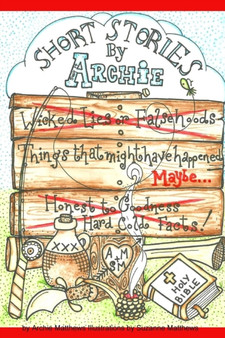 SHORT STORIES
BY
ARCHIE
Wicked Lies or Falsehoods
Things that might have happened
Maybe...
Honest to Goodness
Hard Cold Facts!
XXX
A M
S M
HOLY
BIBLE
by Archie Matthews Illustrations by Suzanne Matthews